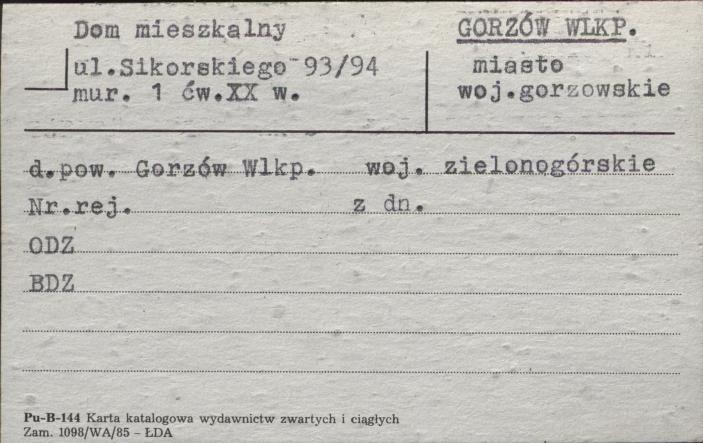 Dom mieszkalny
GORZÓW WLKP.
ul.Sikorskiego 93/94
miasto
mur. 1 ćw.XX w.
woj.gorzowskie
d.pow. Gorzów Wlkp. woj. zielonogórskie
Nr.rej. z dn.
ODZ
BDZ
Pu-B-144 Karta katalogowa wydawnictw zwartych i ciągłych
Zam. 1098/WA/85 – ŁDA